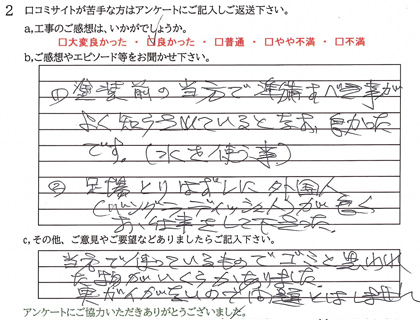 2 口コミサイトが苦手な方はアンケートにご記入しご返送下さい。
a,工事のご感想は、いかがでしょうか。
□大変良かった ・ ☑良かった ・ □普通 ・ □やや不満 ・ □不満
b,ご感想やエピソード等をお聞かせ下さい。
① 塗装前の当方で準備すべき事が
よく知らされていると なお、良かった
です。(水を使う事)
② 足場とりはずしに外国人
(バングラディッシュ人)が良く
お仕事をして下さった。
c,その他、ご意見やご要望などありましたらご記入下さい。
当方で使っているものでゴミと思われ
た物がいくつかありました。
アンケートにご協力いただきありがとうございました。